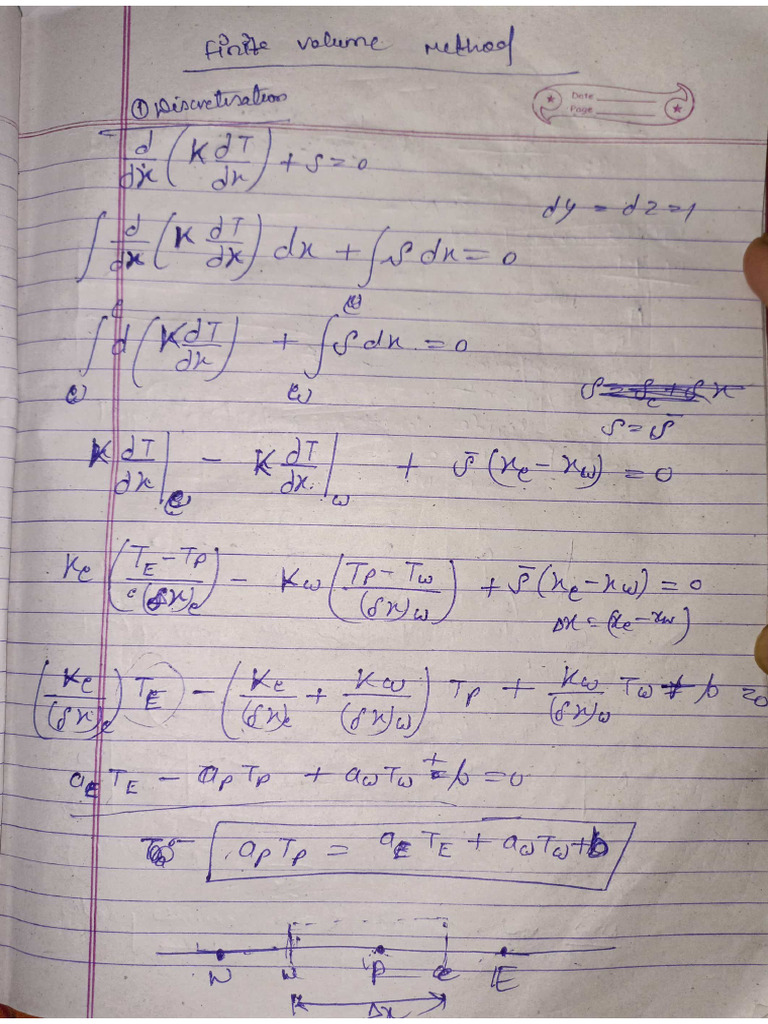 Finite volume method
① Discretisation
Date
Page
d/dx (K dT/dx) + S = 0
dy = dz = 1
∫ d/dx (K dT/dx) dx + ∫ S dx = 0
∫_w^e d(K dT/dx) + ∫_w^e S dx = 0
S = S̄
K dT/dx |_e − K dT/dx |_w + S̄ (x_e − x_w) = 0
K_e (T_E − T_P / (δx)_e) − K_w (T_P − T_W / (δx)_w) + S̄ (x_e − x_w) = 0
Δx = (x_e − x_w)
(K_e / (δx)_e) T_E − (K_e / (δx)_e + K_w / (δx)_w) T_P + K_w / (δx)_w T_W + b = 0
a_E T_E − a_P T_P + a_W T_W + b = 0
a_P T_P = a_E T_E + a_W T_W + b
W w P e E
Δx